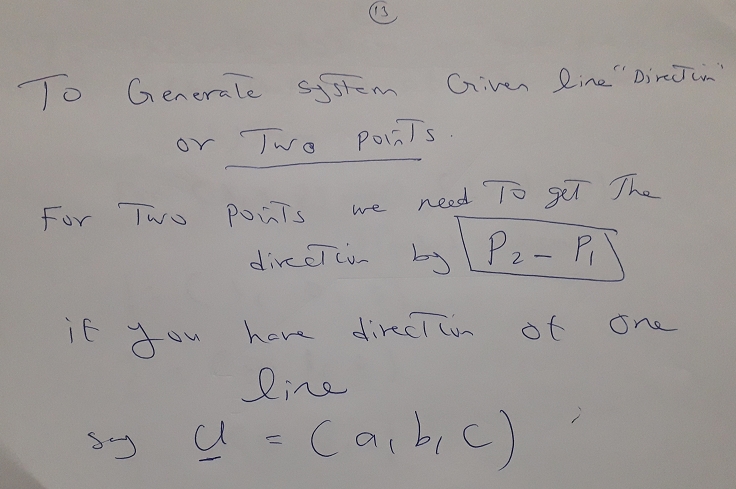 13
To Generate system Given line "Direction"
or Two points.
For Two points we need To get The
direction by P₂ - P₁
if you have direction of one
line
say u = (a, b, c)